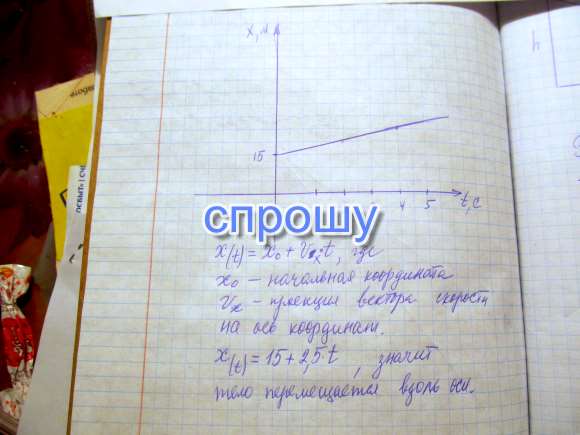 x, м
15
4 5 t, c
спрошу
x(t) = x₀ + vₓ·t, где
x₀ – начальная координата
vₓ – проекция вектора скорости
на ось координат.
x(t) = 15 + 2,5·t, значит
тело перемещается вдоль оси.